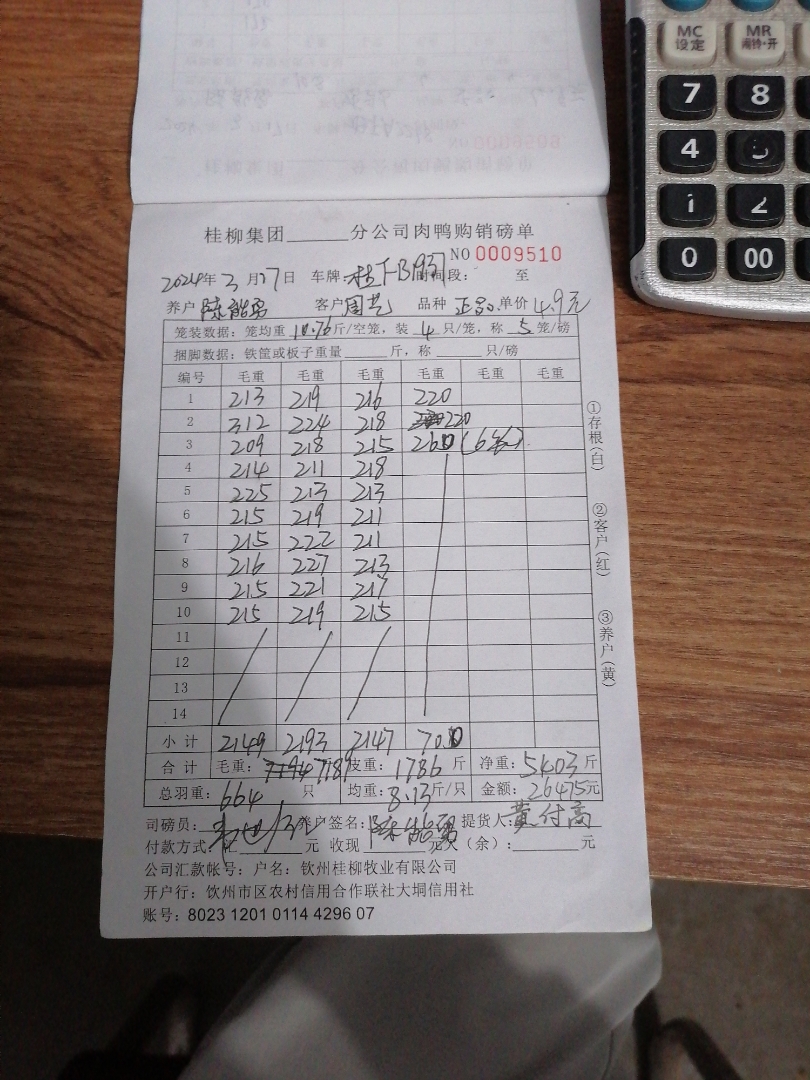 MC MR
设定 闹铃·开
7 8
4 5
1 2
0 00
桂柳集团______分公司肉鸭购销磅单
NO 0009510
2024年3月27日 车牌 时间段: 至
养户 陈能勇 客户 周艺 品种 正品 单价 4.9元
笼装数据: 笼均重 10.76斤/空笼, 装 4 只/笼, 称 5 笼/磅
捆脚数据: 铁筐或板子重量______斤, 称______只/磅
编号 毛重 毛重 毛重 毛重 毛重 毛重
1 213 219 216 220
2 312 224 218 220
3 209 218 215 260 (6笼)
4 214 211 218
5 225 213 213
6 215 219 211
7 215 222 211
8 216 227 213
9 215 221 217
10 215 219 215
11
12
13
14
小计 2149 2193 2147 700
合计 毛重: 7189 皮重: 1786 斤 净重: 5403 斤
总羽重: 664 只 均重: 8.13斤/只 金额: 26475元
司磅员: 养户签名: 陈能勇 提货人: 黄付高
付款方式: 汇______元 收现 元欠(余):______元
公司汇款帐号: 户名: 钦州桂柳牧业有限公司
开户行: 钦州市区农村信用合作联社大垌信用社
账号: 8023 1201 0114 4296 07
①存根(白)
②客户(红)
③养户(黄)